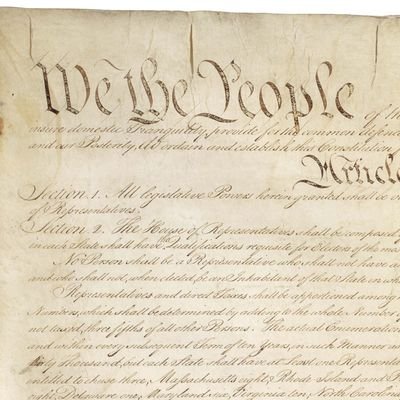 We the People of th
insure domestic Tranquility, provide for the common defence
and our Posterity, do ordain and establish this Constitution f
Article
Section. 1. All legislative Powers herein granted shall be ve
of Representatives.
Section. 2. The House of Representatives shall be composed
in each State shall have the Qualifications requisite for Electors of the most
No Person shall be a Representative who shall not have a
and who shall not, when elected, be an Inhabitant of that State in wh
Representatives and direct Taxes shall be apportioned among
Numbers, which shall be determined by adding to the whole Number
not taxed, three fifths of all other Persons. The actual Enumeration
and within every subsequent Term of ten Years, in such Manner as
thirty Thousand, but each State shall have at Least one Representa
entitled to chuse three, Massachusetts eight, Rhode Island and P
eight, Delaware one, Maryland six, Virginia ten, North Carolina